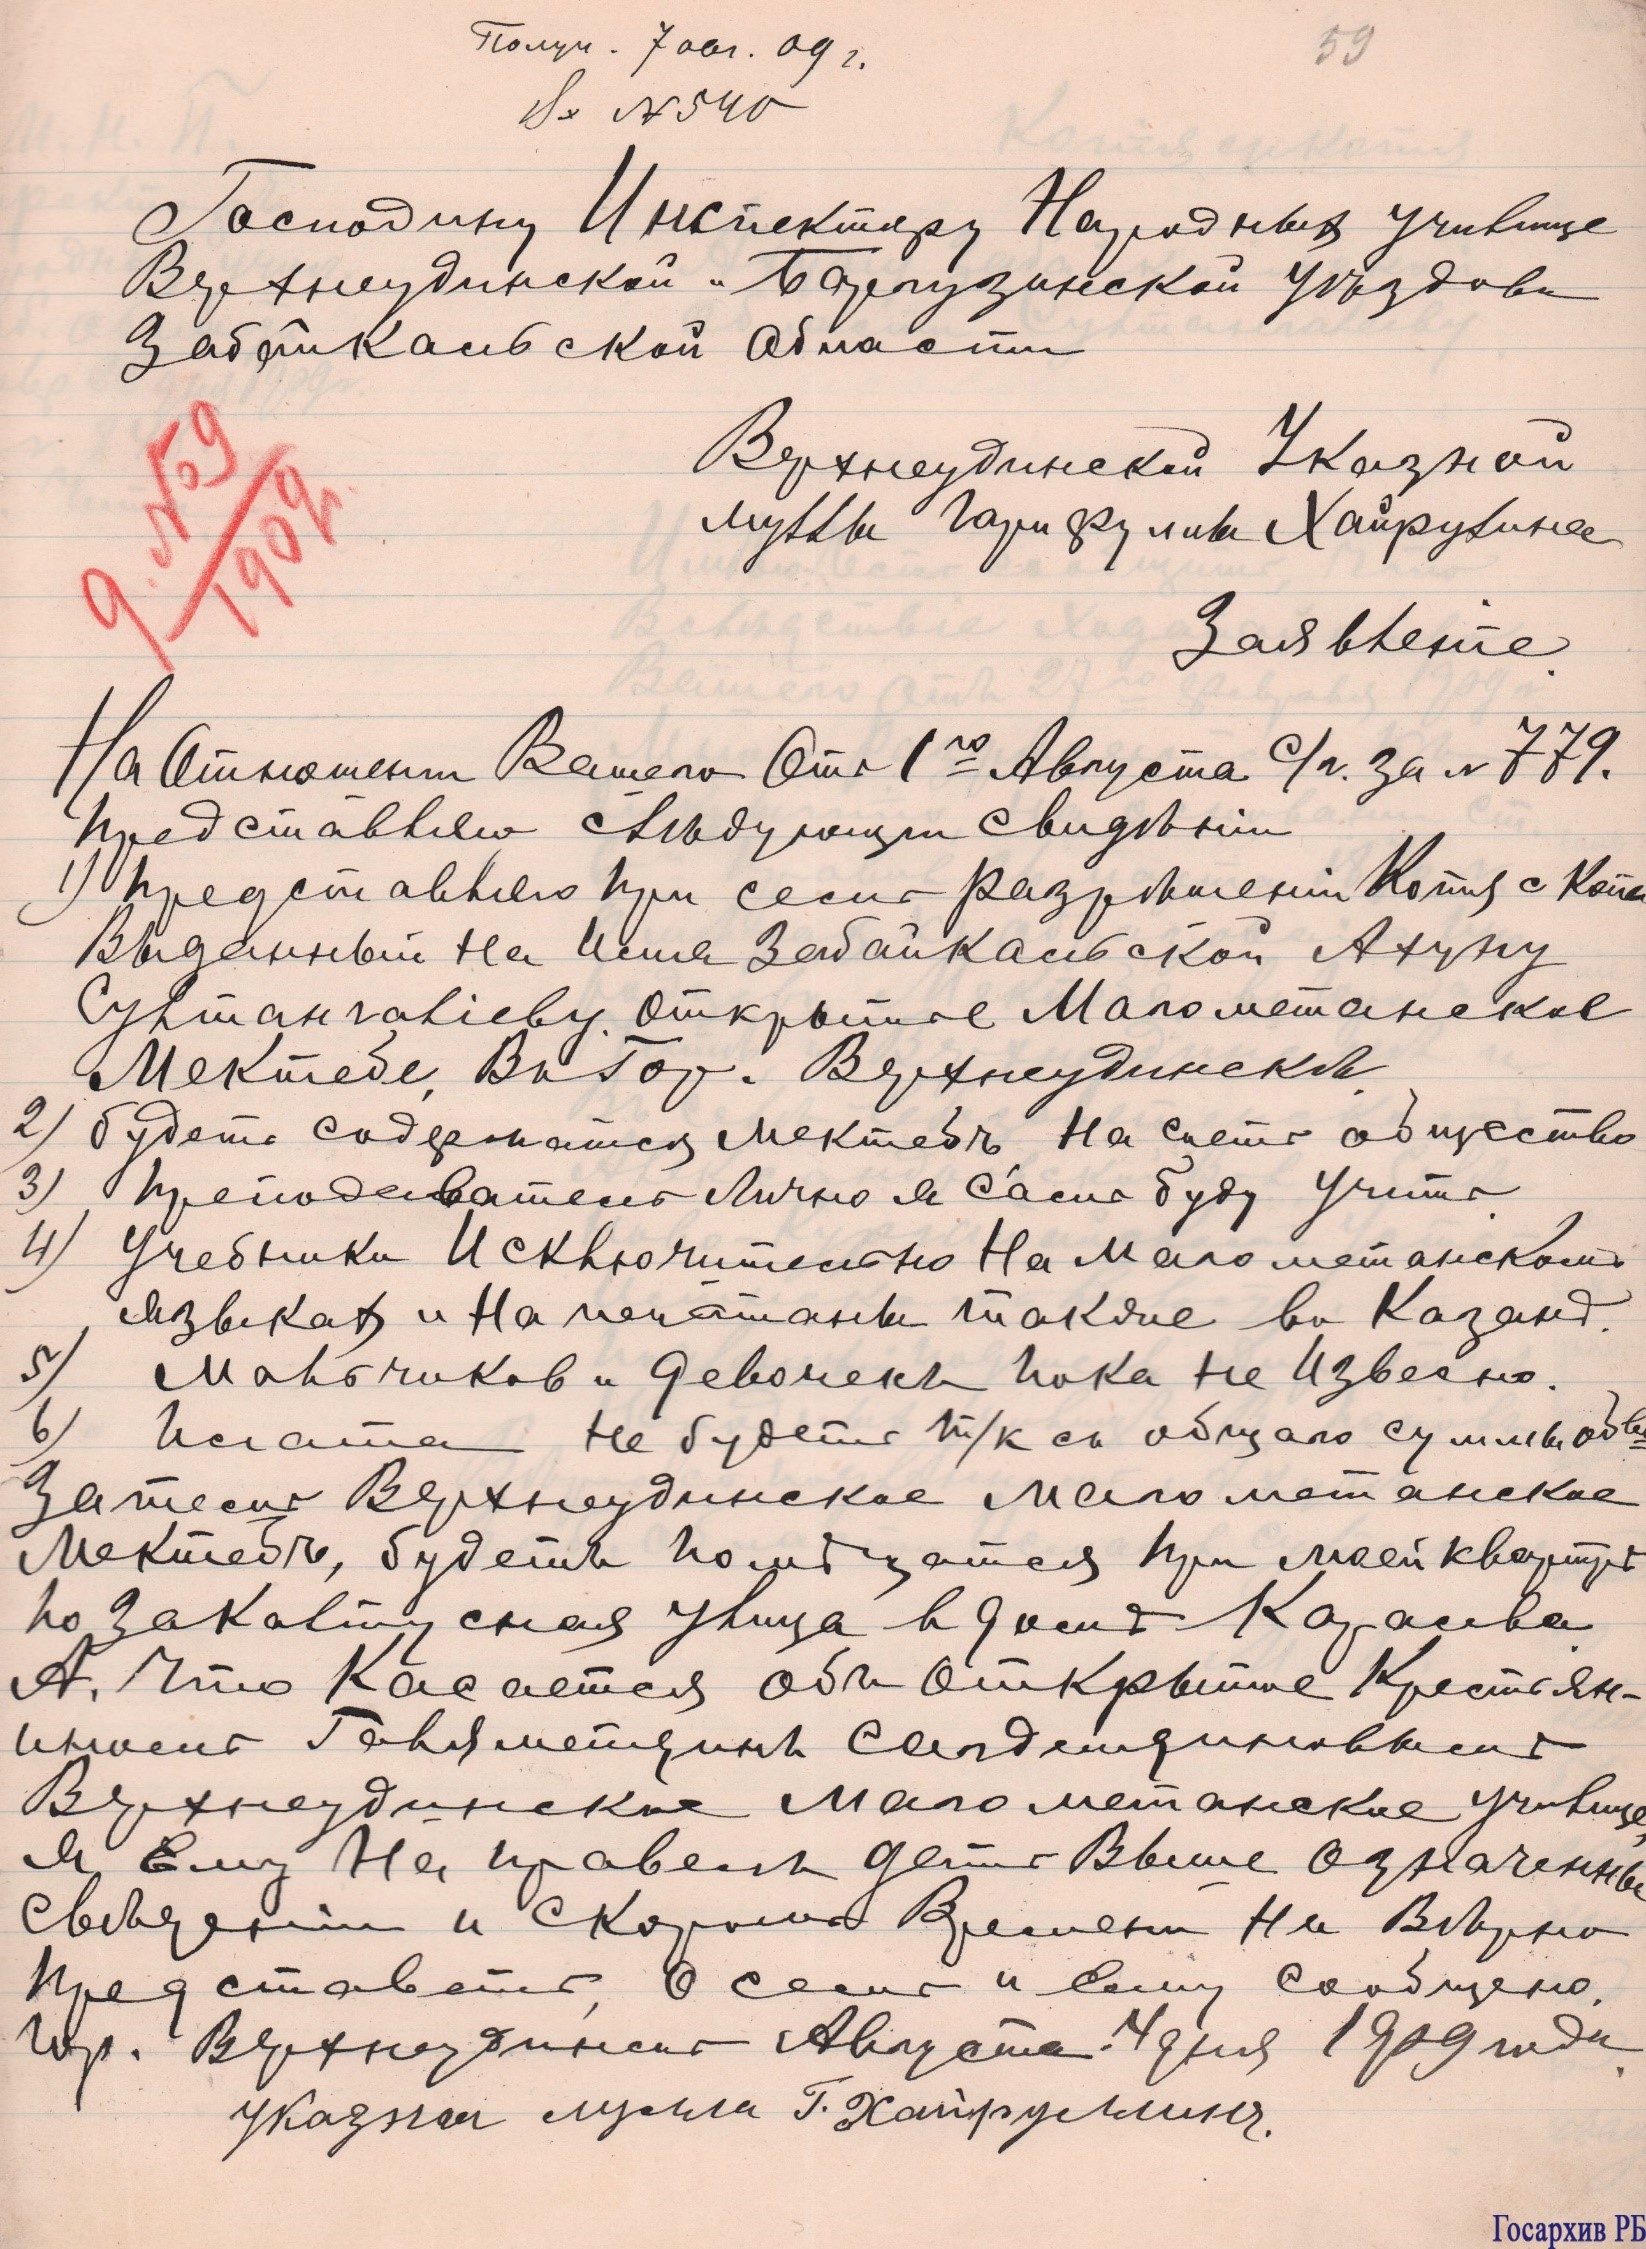 Получ. 7 авг. 09 г.
59
Вх №540
Господину Инспектару Народных училище
Верхнеудинской и Баргузинской уѣздовъ
Забайкальской области
Верхнеудинской Указной
муллы Гарифуллы Хайрулина
Заявленіе.
д. №59
1909 г.
На Отношеніи Вашего Отъ 1го Августа с/г. за № 779.
представляю слѣдующи свидѣніи
1) представляю при семъ разрѣшеніи Копія с Копіи
Выданный на имя Забайкальской Ахуну
Султангаліеву. открытіе Магометанское
Мектебе, Въ Гор. Верхнеудинскѣ
2) будетъ содержатся мектебъ на счетъ общество
3) преподаватель Лично я самъ буду учить.
4) учебники Исключительно На магометанскомъ
языках и напечатаны также въ Казанѣ.
5) Мальчиков и девочекъ пока не извесно.
6) плата не будетъ т/к съ общаго суммы общ
Затемъ Верхнеудинское магометанское
Мектебъ, будетъ помѣщатся при моей квартирѣ
по Закалтусная улица в домѣ Карамва
А. Что касается объ открытіе Крестьян-
иномъ Гавяметдинъ Сагдетдиновымъ
Верхнеудинское магометанское училище,
я Ему На правелъ дать Выше означенны
свѣдѣніи и скоромъ Времени Ни Вѣрно
представетъ, о семъ и ему сообщено.
Гор. Верхнеудинскъ Августа 4 дня 1909 года.
указной мулла Г. Хайруллинъ.
Госархив РБ